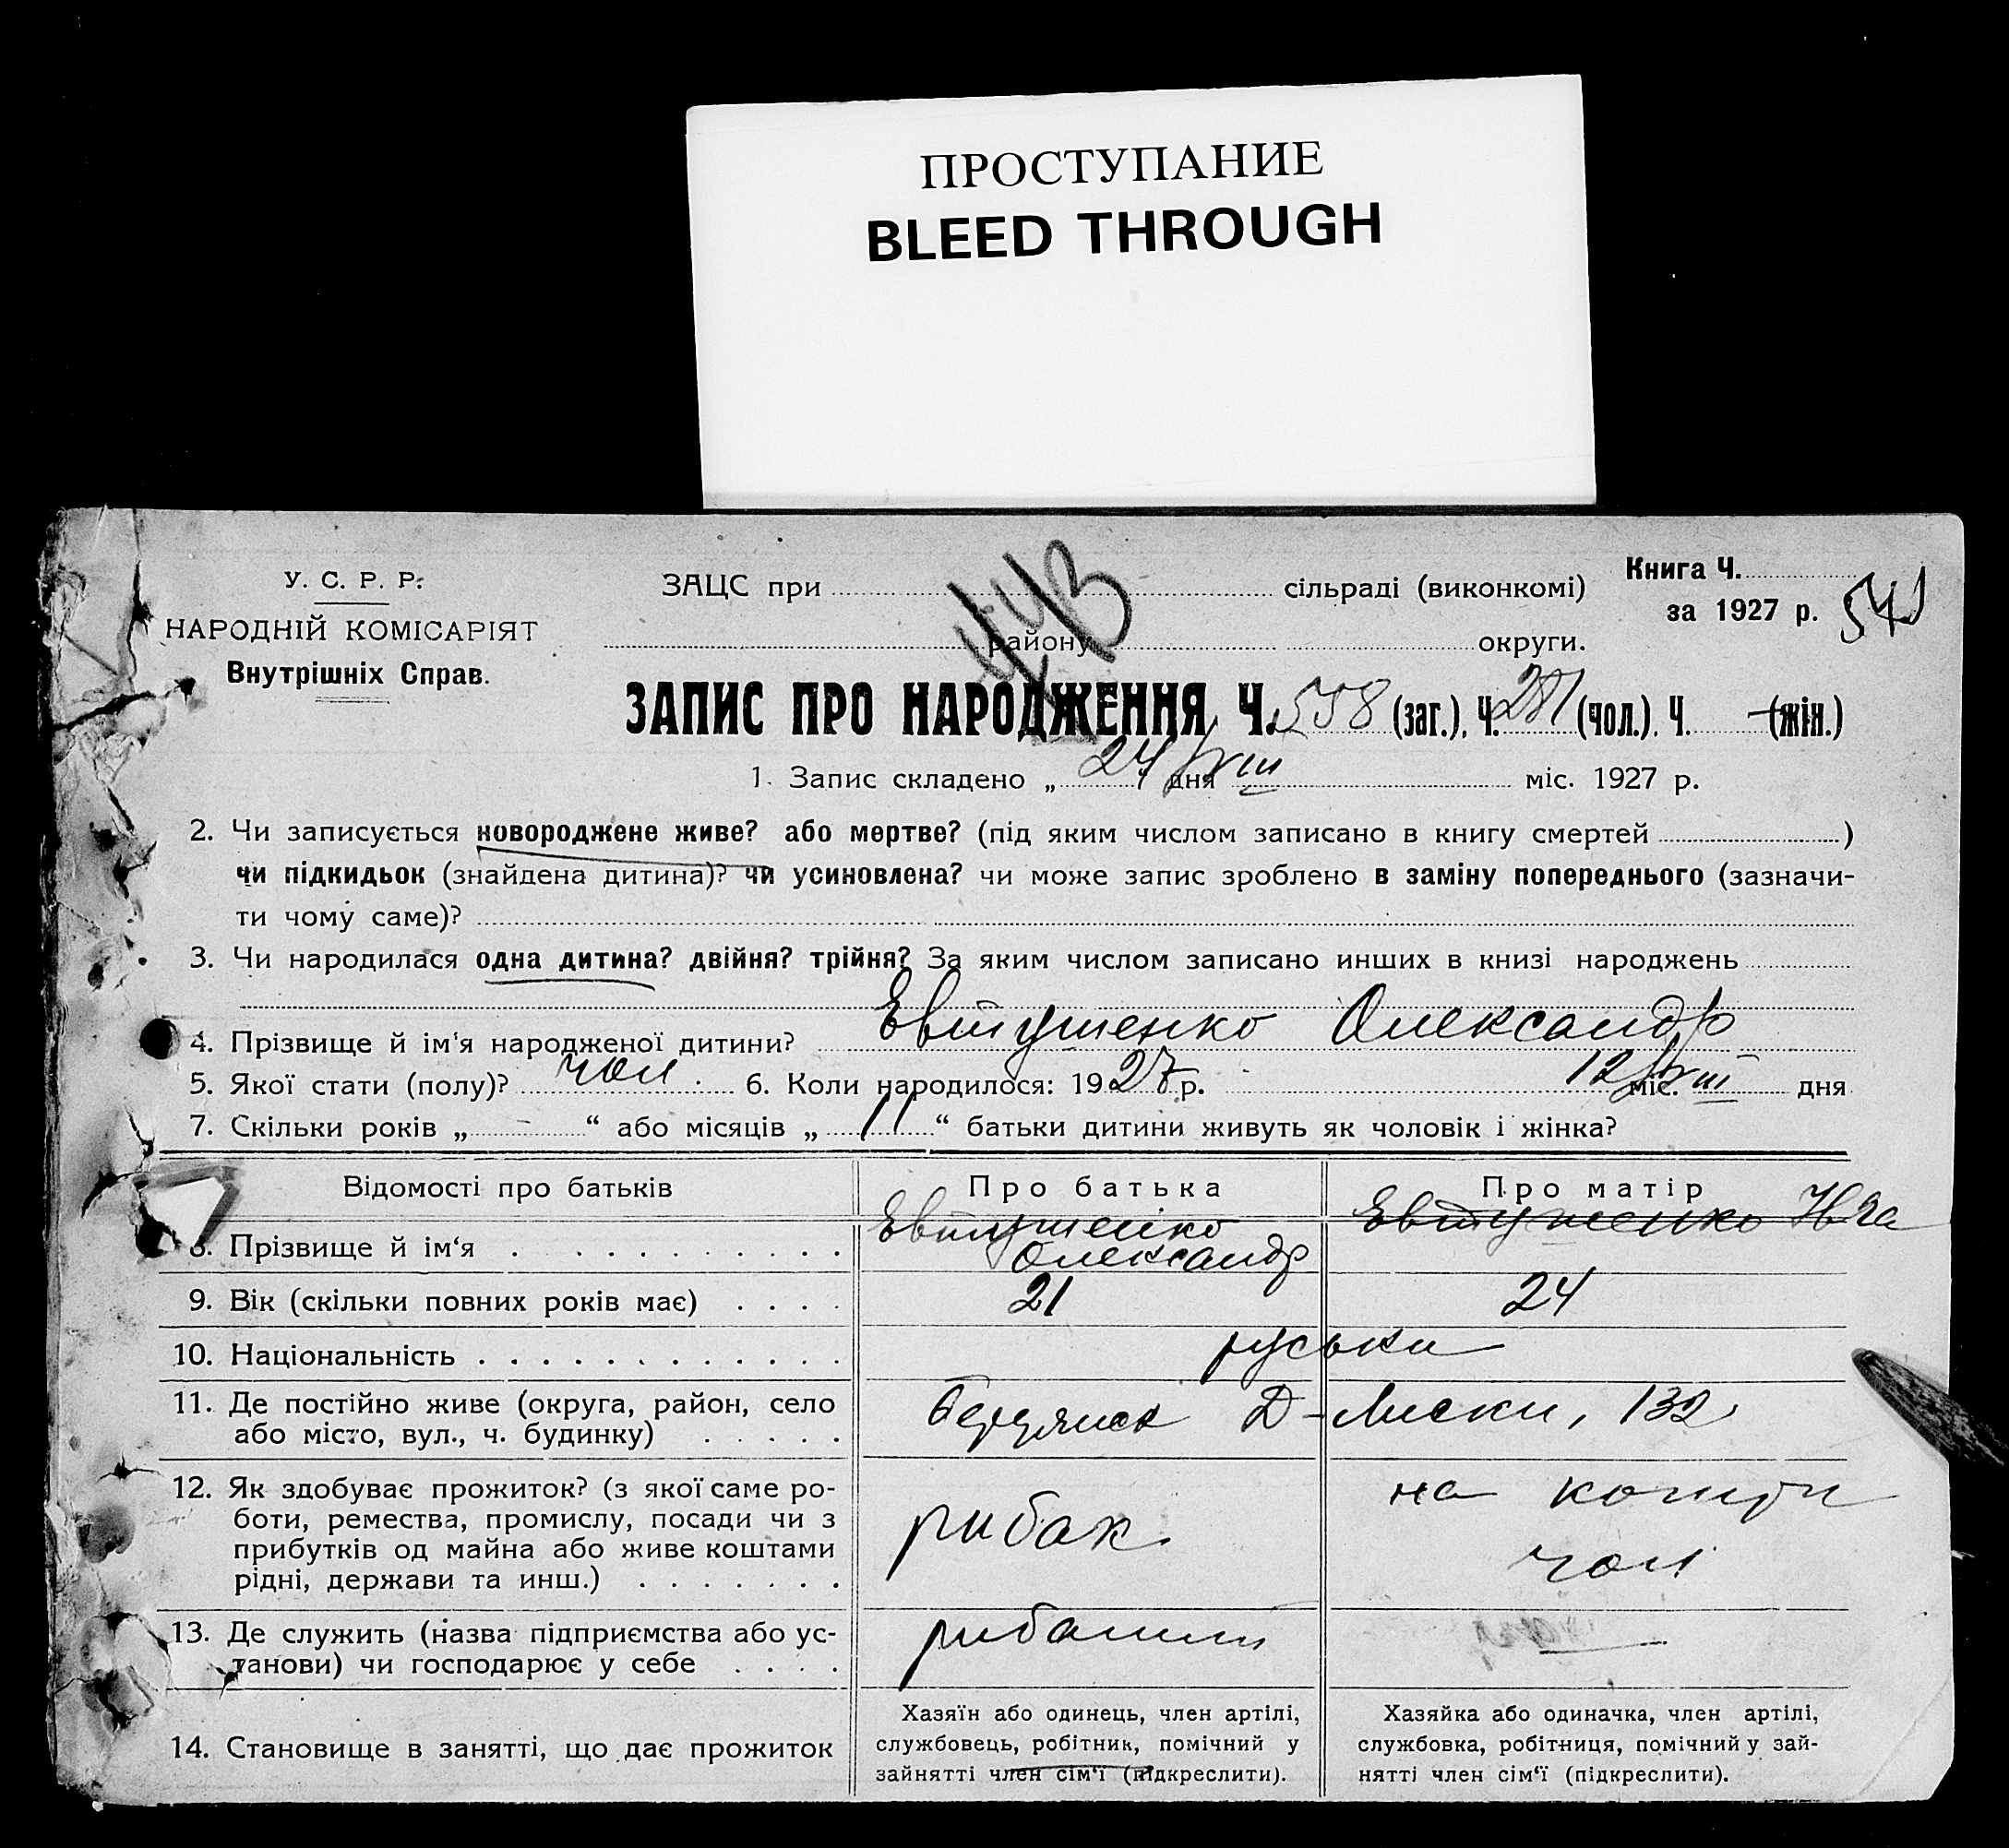 ПРОСТУПАНИЕ
BLEED THROUGH
У. С. Р. Р.
НАРОДНІЙ КОМІСАРІЯТ
Внутрішніх Справ.
ЗАЦС при ... сільраді (виконкомі)
району ... округи.
Книга Ч.
за 1927 р. 541
ЗАПИС ПРО НАРОДЖЕННЯ Ч. 558 (заг.), Ч. 281 (чол.). Ч. — (жін.)
1. Запис складено „ 24 дня VIII міс. 1927 р.
2. Чи записується новороджене живе? або мертве? (під яким числом записано в книгу смертей ... )
чи підкидьок (знайдена дитина)? чи усиновлена? чи може запис зроблено в заміну попереднього (зазначи-
ти чому саме)?
3. Чи народилася одна дитина? двійня? трійня? За яким числом записано инших в книзі народжень
4. Прізвище й ім‘я народженої дитини? Евтушенко Олександр
5. Якої стати (полу)? чол. 6. Коли народилося: 1927 р. 12 міс. VIII дня
7. Скільки років „ - “ або місяців „ 11 “ батьки дитини живуть як чоловік і жінка?
Відомості про батьків Про батька Про матір
8. Прізвище й ім‘я Евтушенко Олександр Евтушенко
9. Вік (скільки повних років має) 21 24
10. Національність руськи
11. Де постійно живе (округа, район, село
або місто, вул., ч. будинку) Бердянск Д-Лиски, 132
12. Як здобуває прожиток? (з якої саме ро-
боти, ремества, промислу, посади чи з
прибутків од майна або живе коштами
рідні, держави та инш.) рибак на кошти чол.
13. Де служить (назва підприємства або ус-
танови) чи господарює у себе
14. Становище в занятті, що дає прожиток
Хазяїн або одинець, член артілі,
службовець, робітник, помічний у
зайнятті член сім‘ї (підкреслити).
Хазяйка або одиначка, член артілі,
службовка, робітниця, помічний у зай-
нятті член сім‘ї (підкреслити).